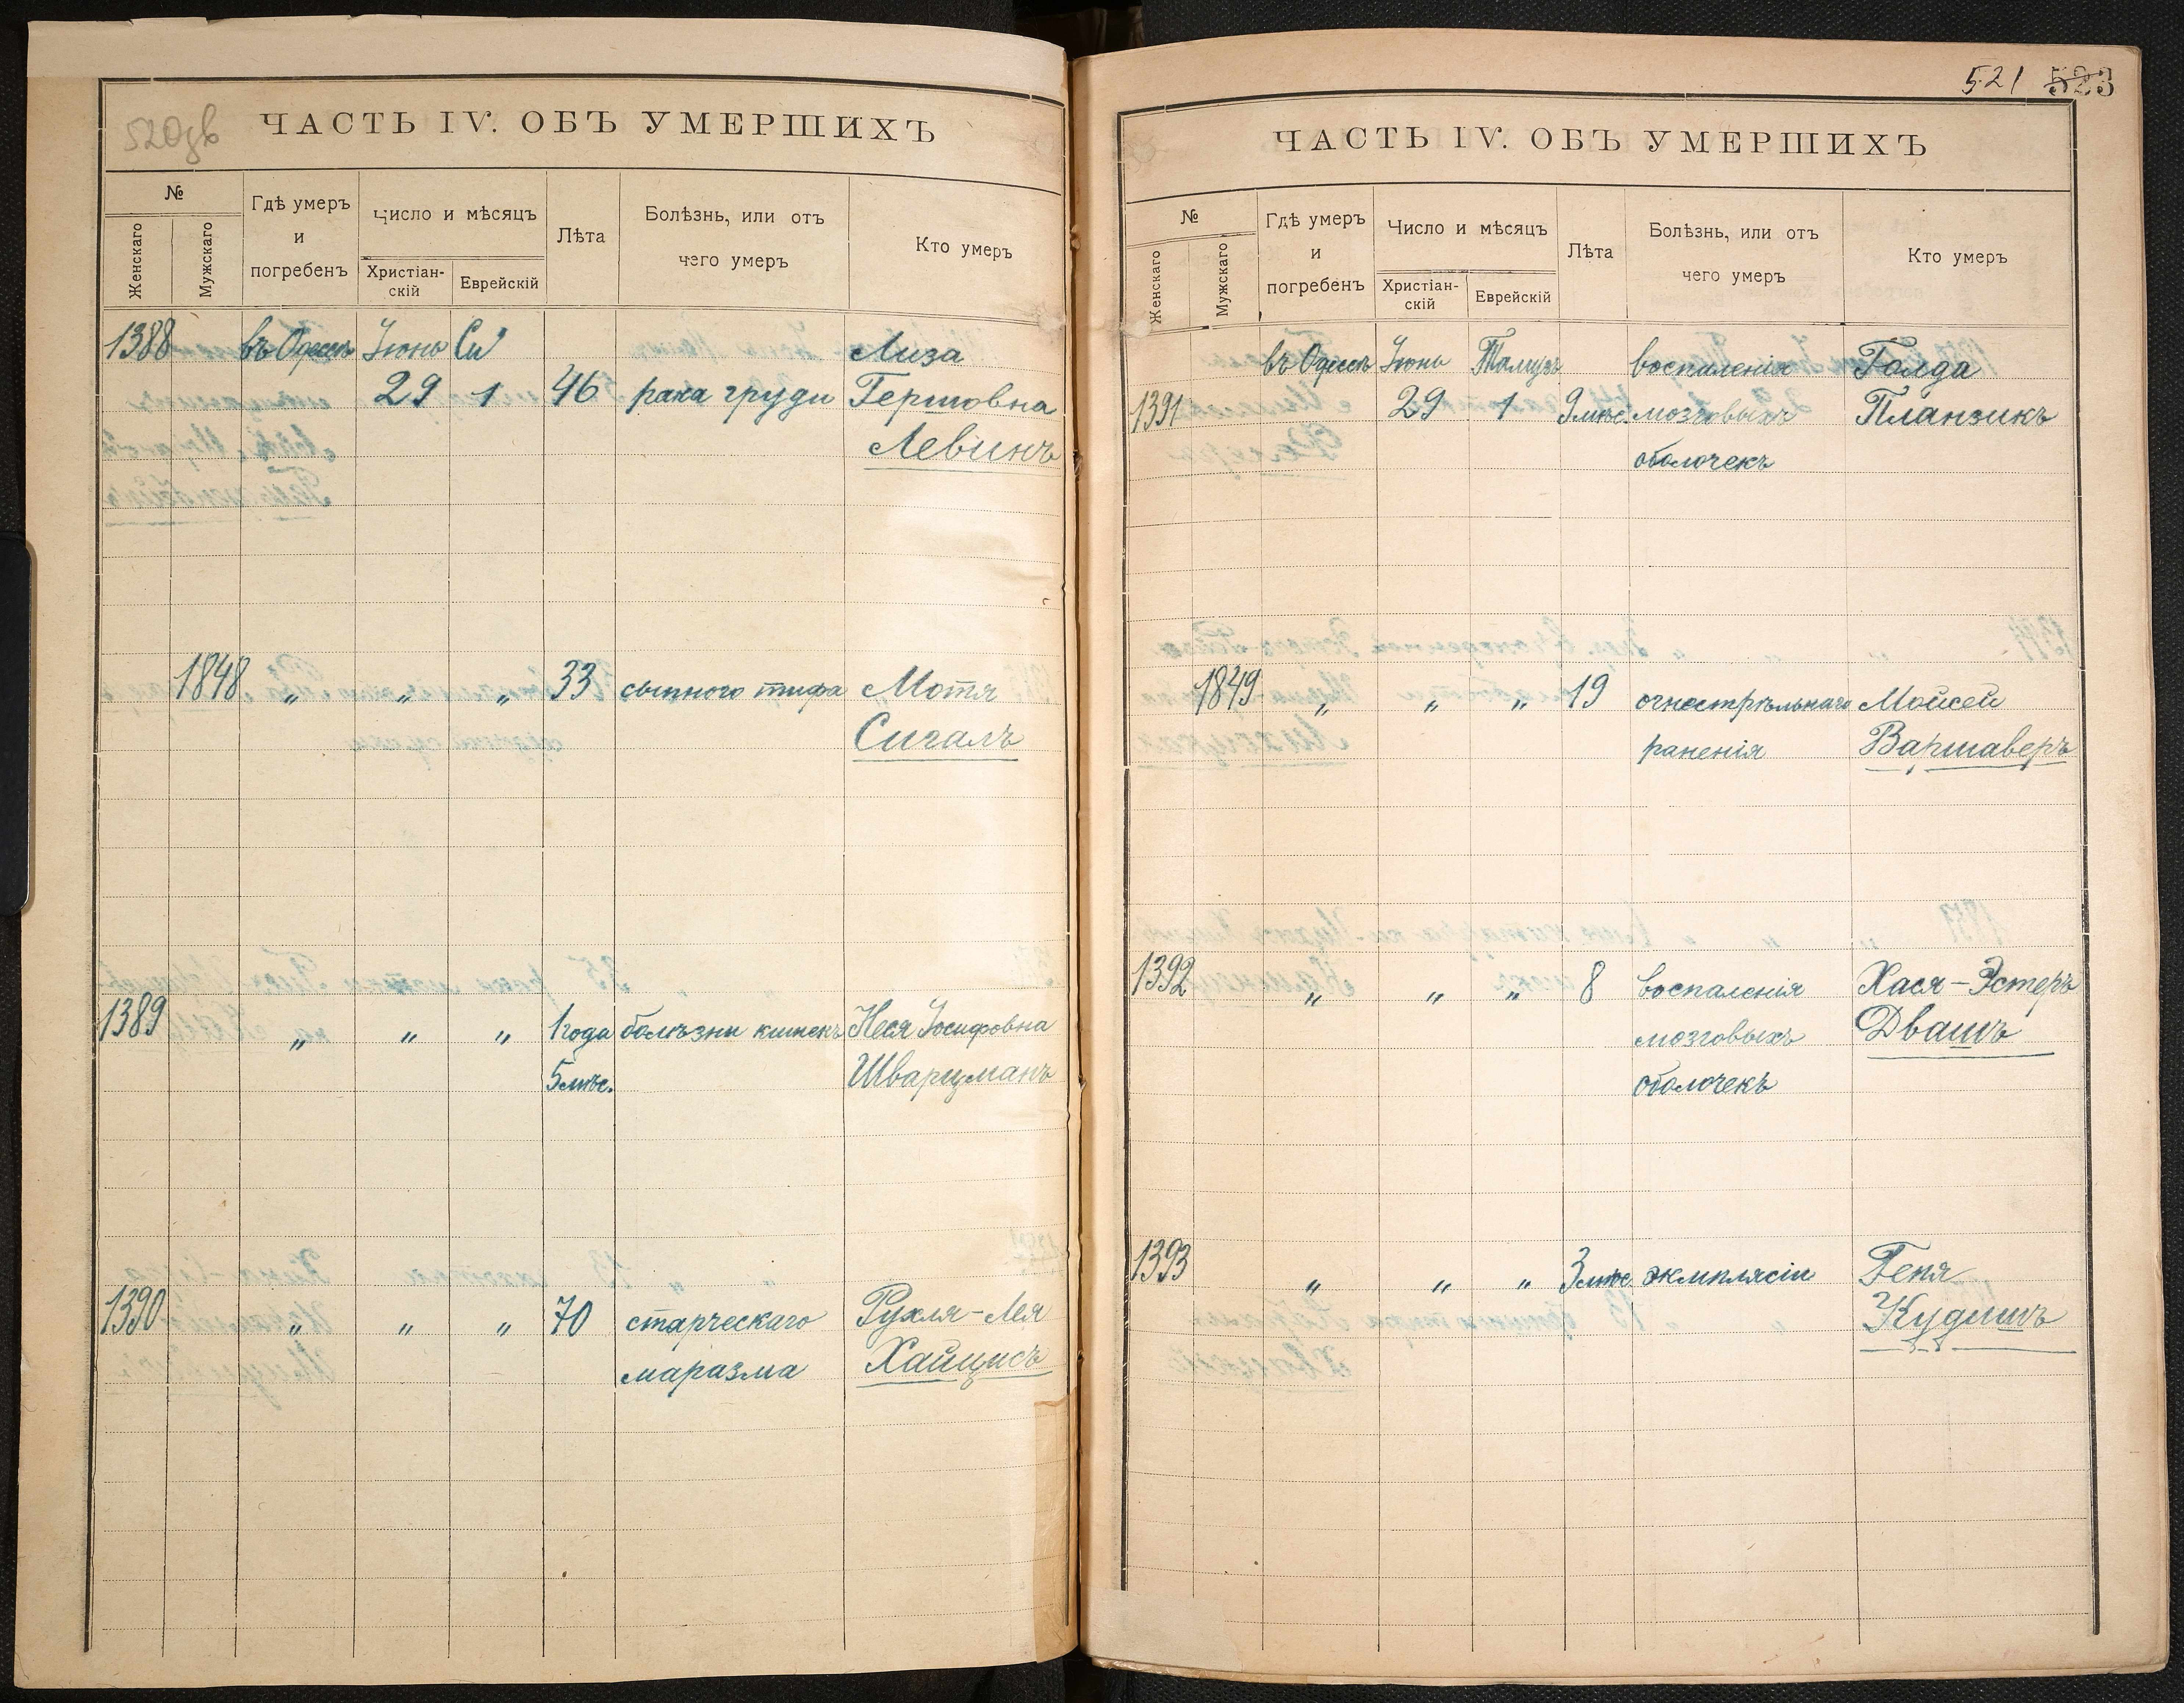 520 зв
ЧАСТЬ IV. ОБЪ УМЕРШИХЪ
№
Женскаго
Мужскаго
Гдѣ умеръ
и
погребенъ
Число и мѣсяцъ
Христіан-
скій
Еврейскій
Лѣта
Болѣзнь, или отъ
чего умеръ
Кто умеръ
1388 въ Одессѣ Іюнь Си Лиза
29 1 46 рака груди Гершовна
Левинъ
1848 " " " 33 сыпного тифа Мотя
Сигалъ
1389 " " " 1 года болѣзни кишекъ Нося Іосифовна
5 мѣс. Шварцманъ
1390 " " " 70 старческаго Рухля-Лея
маразма Хайцисъ
521 523
ЧАСТЬ IV. ОБЪ УМЕРШИХЪ
№
Женскаго
Мужскаго
Гдѣ умеръ
и
погребенъ
Число и мѣсяцъ
Христіан-
скій
Еврейскій
Лѣта
Болѣзнь, или отъ
чего умеръ
Кто умеръ
въ Одессѣ Іюнь Тамузъ воспаленія Голда
1391 29 1 9 мѣс. мозговыхъ Планзикъ
оболочекъ
1849 " " " 19 огнестрѣльнаго Мойсей
раненія Варшаверъ
1392 " " " 8 воспаленія Хася-Эстеръ
мозговыхъ Двашъ
оболочекъ
1393 " " " 3 мѣс эклмплясіи Геня
Кудишъ